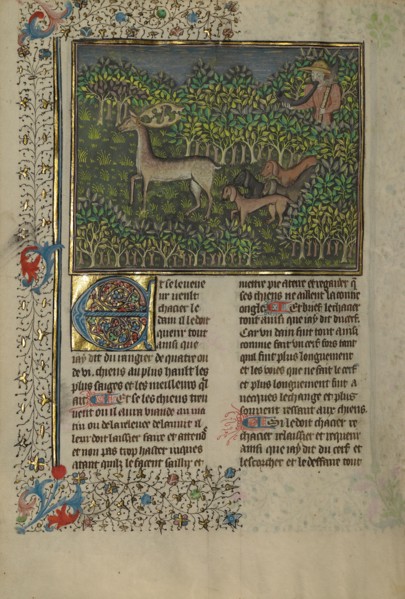 Et se le veneur
ueult
chacier le
dain il le doit
querir tout
ainsi que
iay dit du rangier de quatre ou
de vi. chiens au plus hault les
plus saiges et les meilleurs ql
ait Et se les chiens treu
uent ou il aura viande au ma
tin ou de la releuee deuant il
leur doit laissier faire et attendre
et non pas trop haster iucques
atant quilz le facent saillir et
mettre pie a terre et regarder q
ses chiens ne aillent la contre
ongle Et puis le chacier
tout ainsi que iay dit du cerf.
Car vn dain fuit tout ainsi
comme fait vn cerf fors tant
quil fuit plus longuement
et les voies que ne fait le cerf
et plus longuement fait a
uecques le change et plus
souuent ressaut aux chiens.
Et si le doit chacier re
chacier relaissier et requerir
ainsi que iay dit du cerf et
lescorcher et le deffaire tout